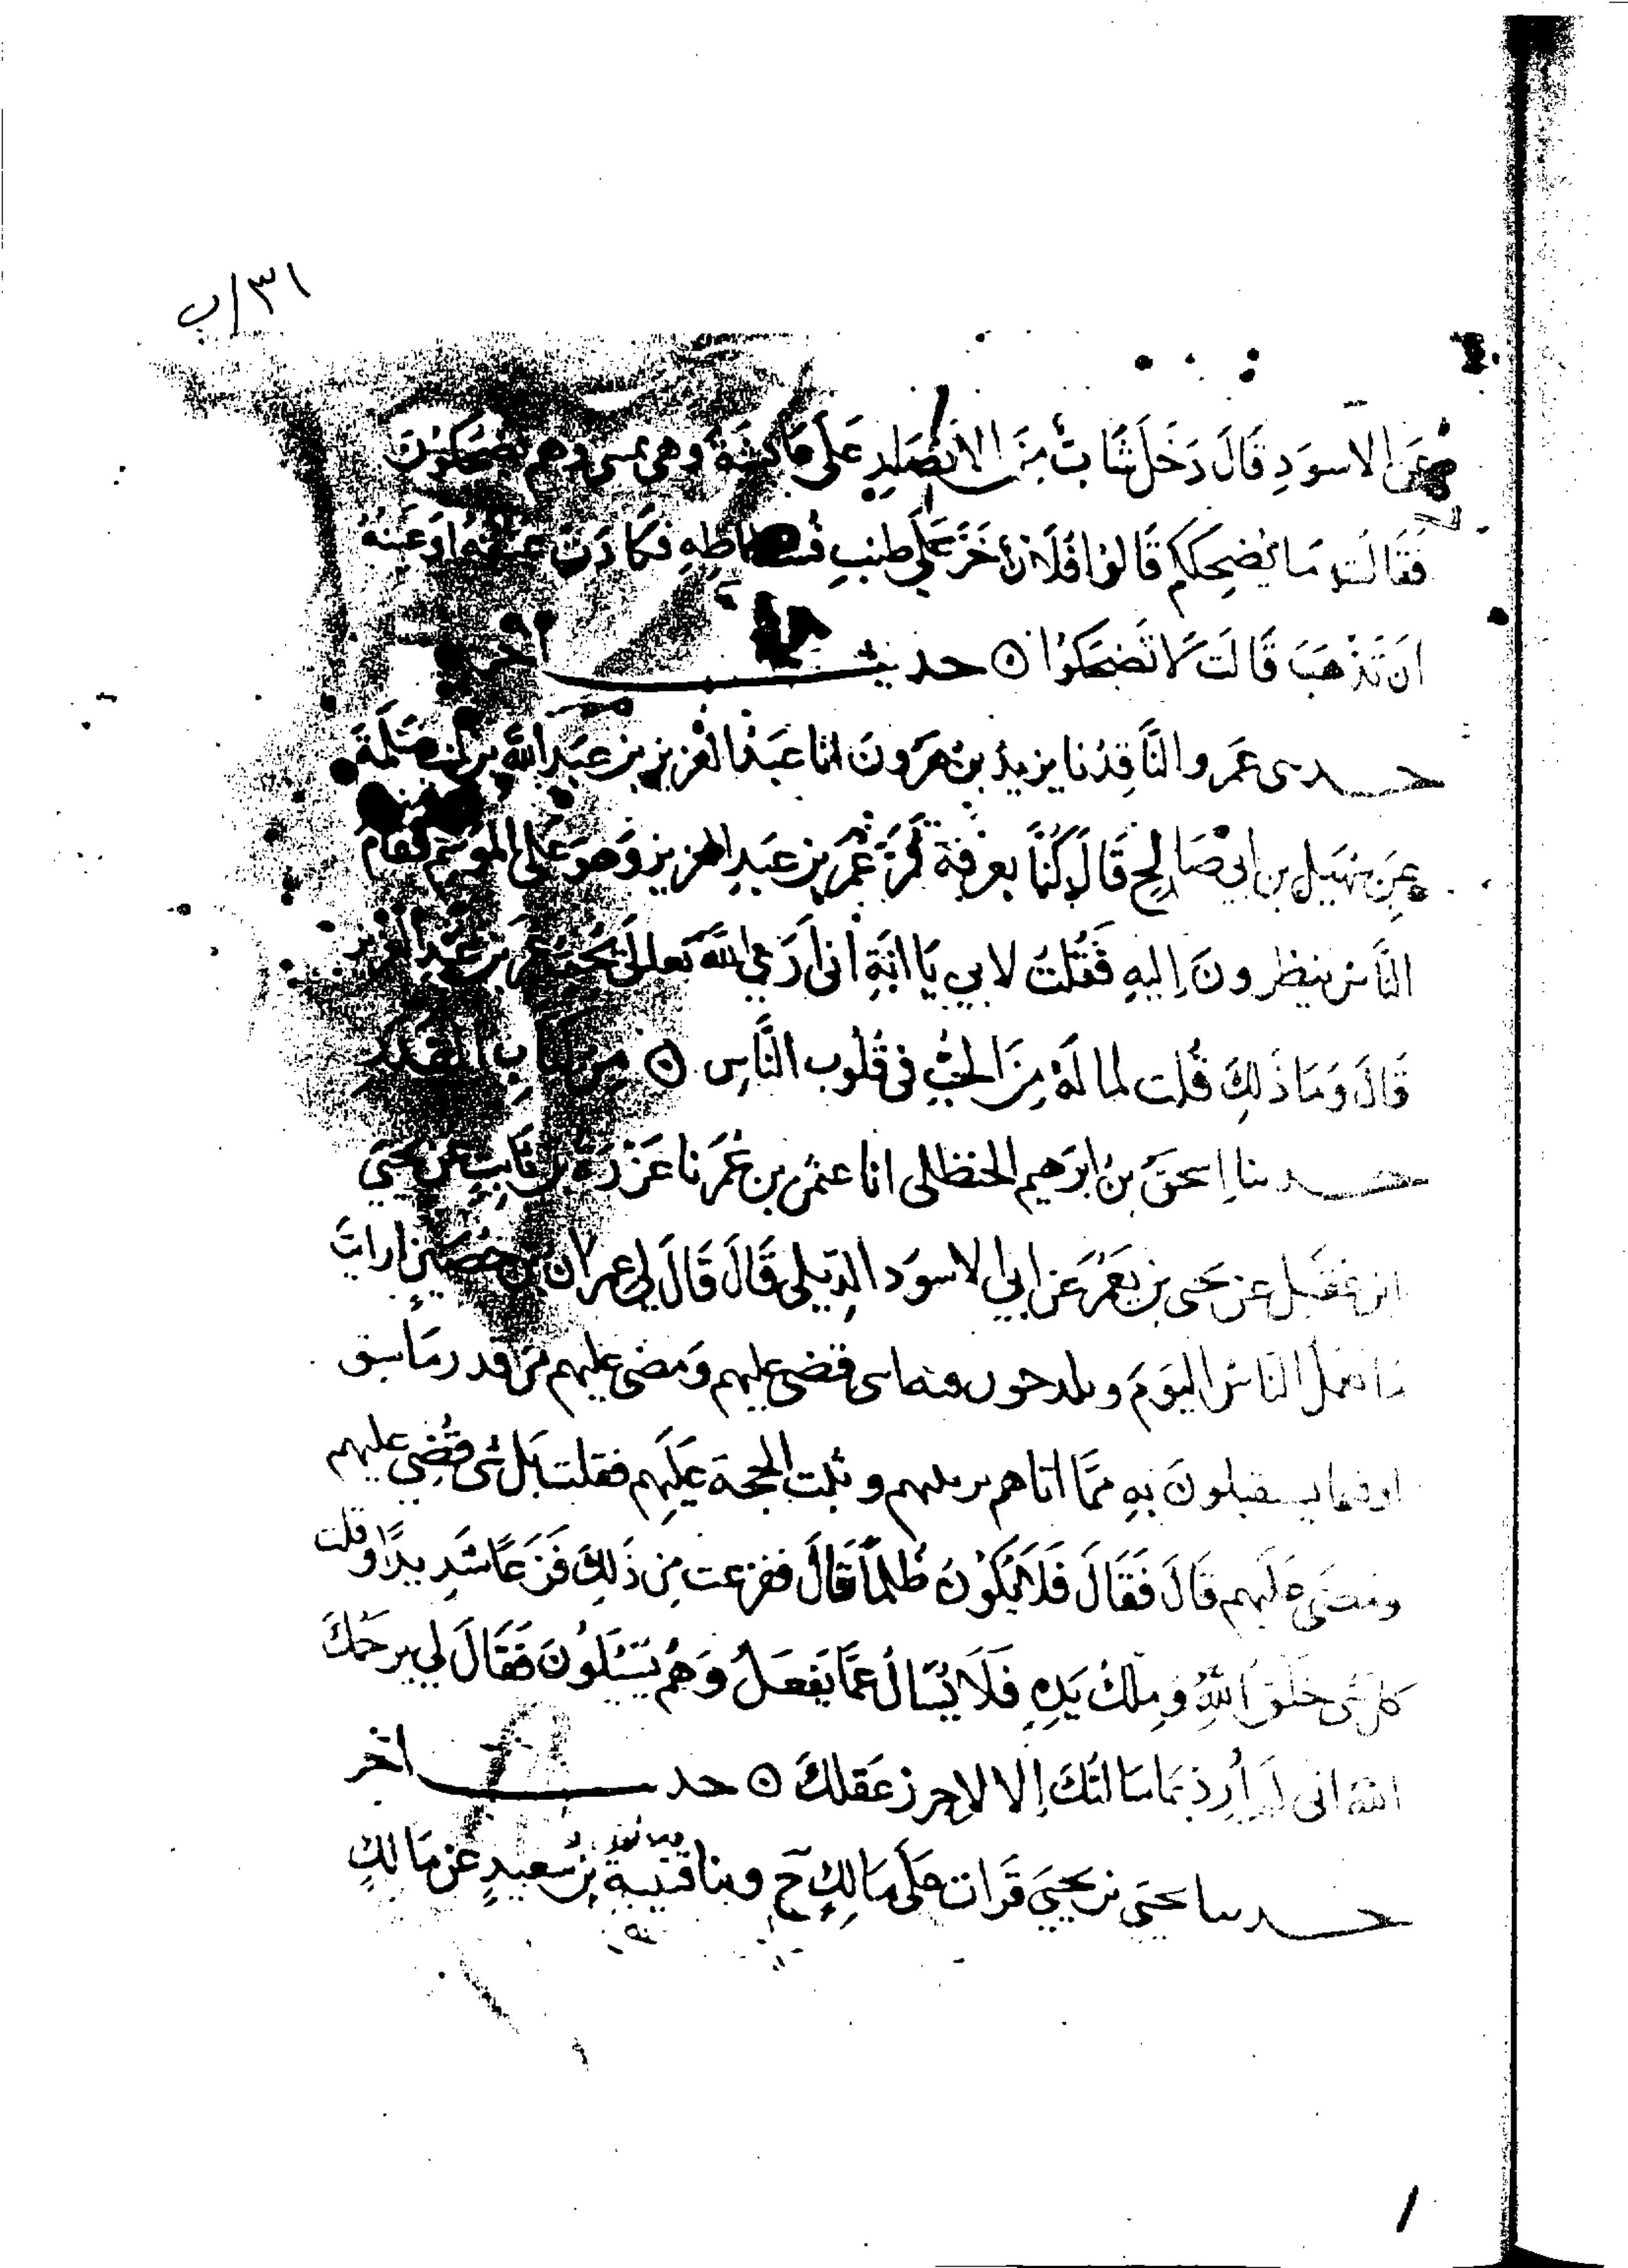 ٣١/ب
عَن الاسوَدِ قَالَ دَخَلَ شَابٌّ مِنَ الانصار عَلَى عَائشَةَ وهى بمنى وهم يضحكون
فَقَالَت مَا يُضحِككم قَالوُا فُلَانٌ خَرَّ عَلَى طنبِ فسطاطِهِ فكادَت عنقه اوَ عَينهُ
ان تَذهَبَ قَالَت لَا تَضحَكوُا ۞ حديث اخر
حدثنى عَمرو النَّاقِدُ نا يزيدُ بنُ هرون انا عَبدُ العزيز بن عبد الله بن ابى سلمة
عَن سُهَيل بن ابى صَالح قَالَ كُنَّا بعرفة فَمَرَّ عُمَر بن عَبدِ العزيز وَهوَ عَلى الموسِم فقام
النَّاسُ ينظرونَ اِليهِ فَقُلتُ لابى يَا ابَةِ انى اَرَى اللَّهَ تعالى يُحب عمر بن عَبد العزيز
قَالَ وَمَا ذَلِكَ قُلت لما لَهُ مِنَ الحُبِّ فى قُلوب النَّاسِ ۞ مِن كتابِ القَدَر
حدثنا اسحقُ بنُ ابرَهيم الحنظلى انا عثمن بن عُمَر نا عَزرَة بن ثَابِتٍ عَن يحيَى
ابن عُقَيل عن يَحيى بن يَعمُرَ عَن ابى الاسوَد الدِّيلى قَالَ قَالَ لى عمران بن حُصَين ارايتَ
مَا يعمَلُ النَّاسُ اليَومَ ويكدحون فيه اشى قضى عليهم وَمَضى عليهم مِن قدر مَا سبق
اوفيما يستقبلونَ بهِ مِمَّا اتاهم به نبيهم وثبتت الحجة عَلَيهم فقلت بَل شى قُضِىَ عليهم
ومَضَى عَلَيهم قَالَ فَقَالَ فَلَا يَكوُنُ ظُلماً قَالَ ففزعت مِن ذَلِكَ فَزَعًا شَدِيدًا وقلت
كل شى خَلقُ اللَّهِ وَمِلكُ يَدِهِ فَلَا يُسَالُ عَمَّا يَفعَلُ وَهُم يُسئَلوُنَ فَقَالَ لى يرحَمُكَ
اللَّه انى لَم اُرِد بمَا سَالتُكَ اِلا لاحرز عَقلكَ ۞ حديث اخر
حدثنا يَحيَى بن يحيَى قَرَات عَلَى مَالِكٍ ح وثنا قتيبةُ بنُ سَعيدٍ عَن مَالكٍ